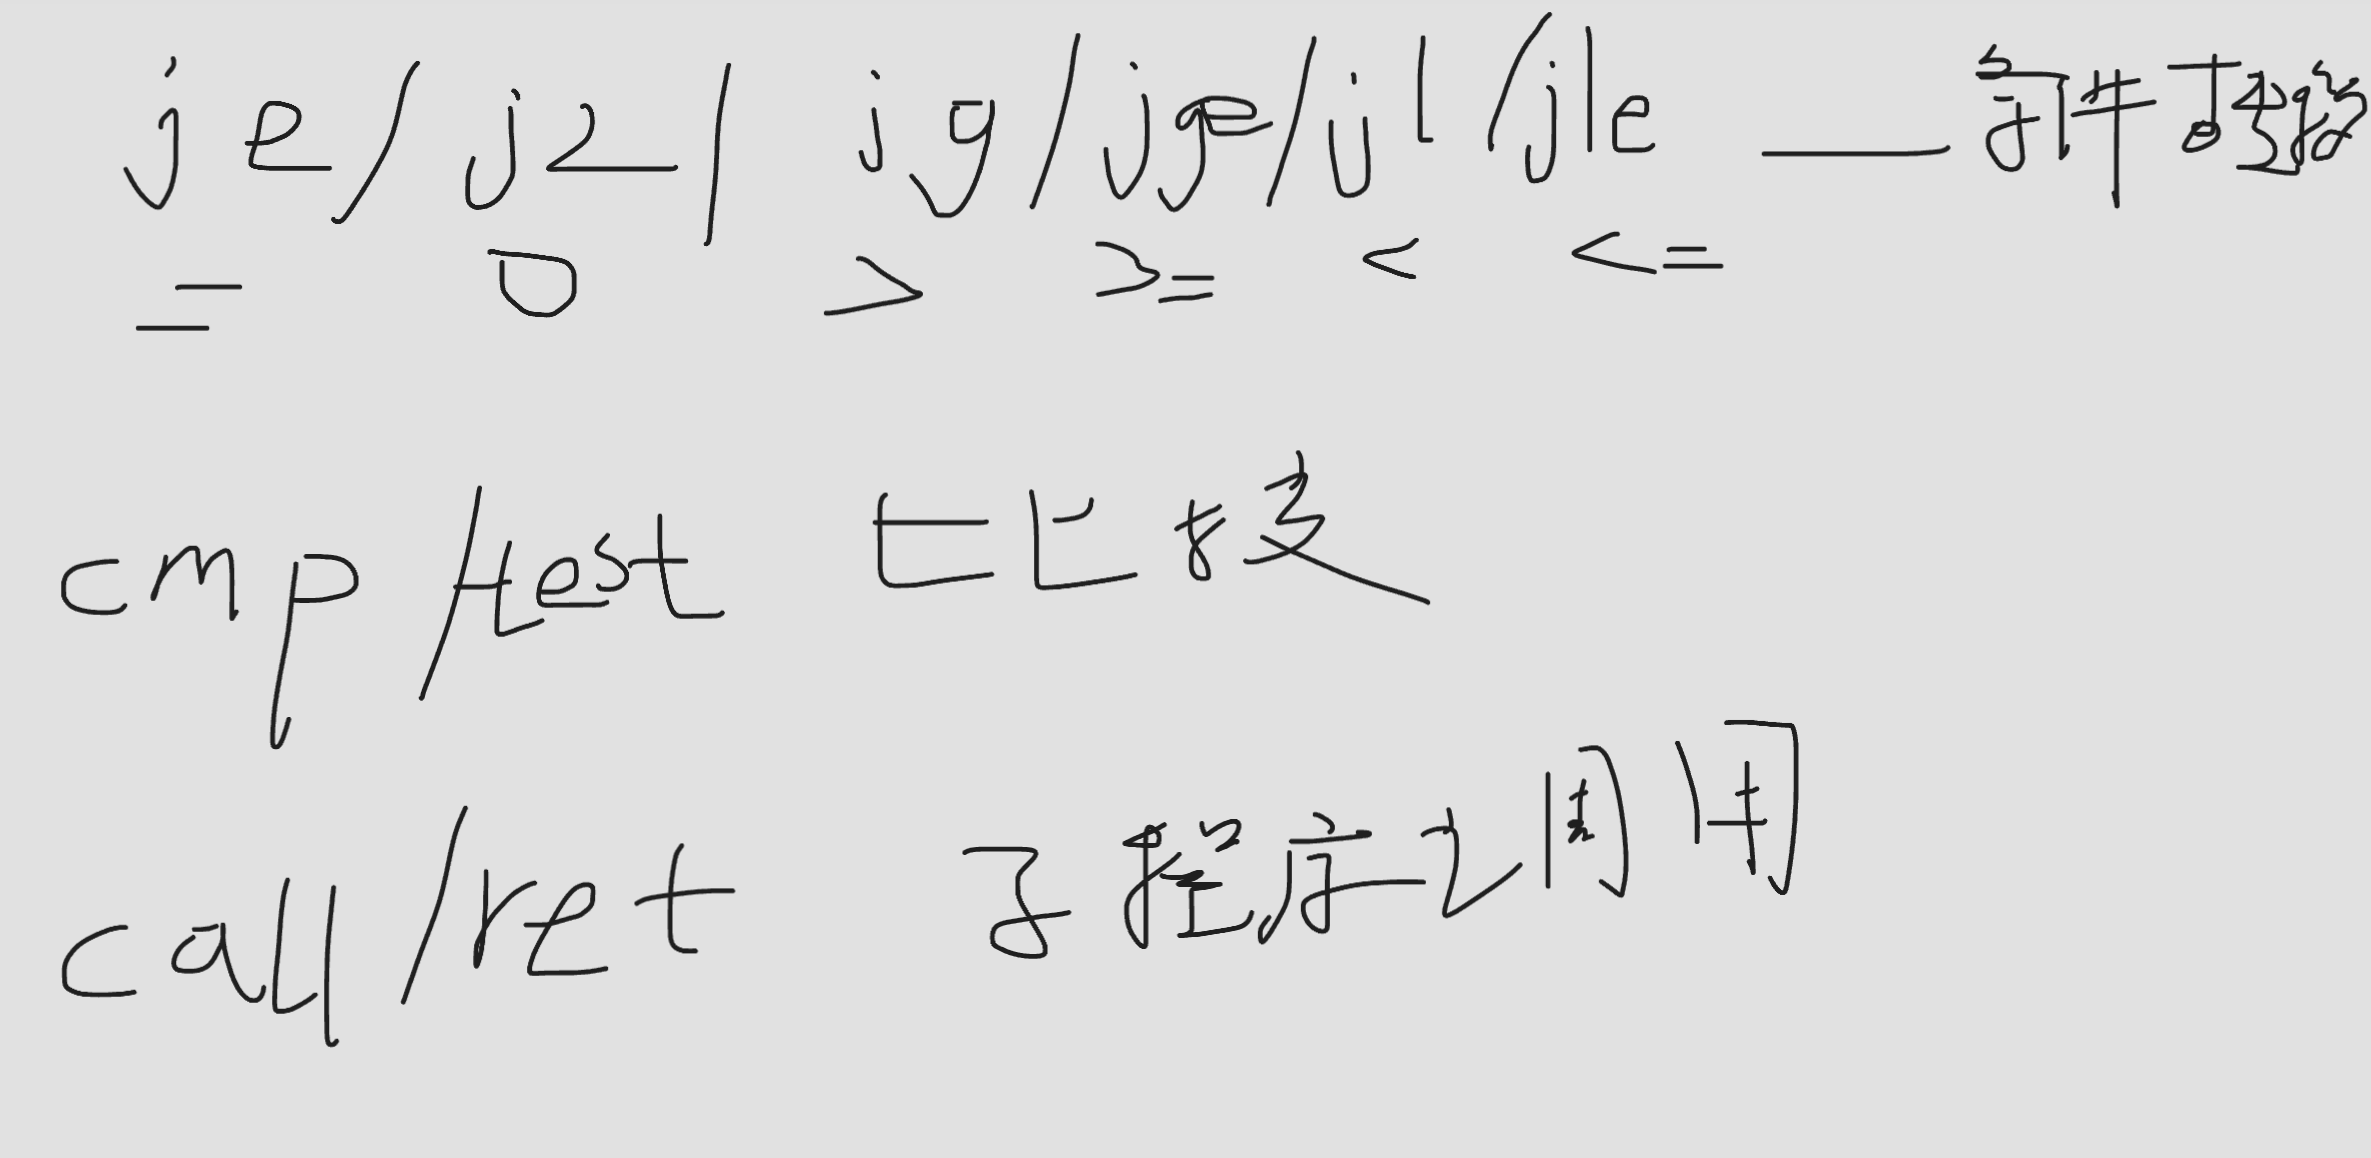 je/jz/ jg/jge/jl/jle —— 条件
= 0 > >= < <=
cmp/test 比较
call/ret 子程序调用